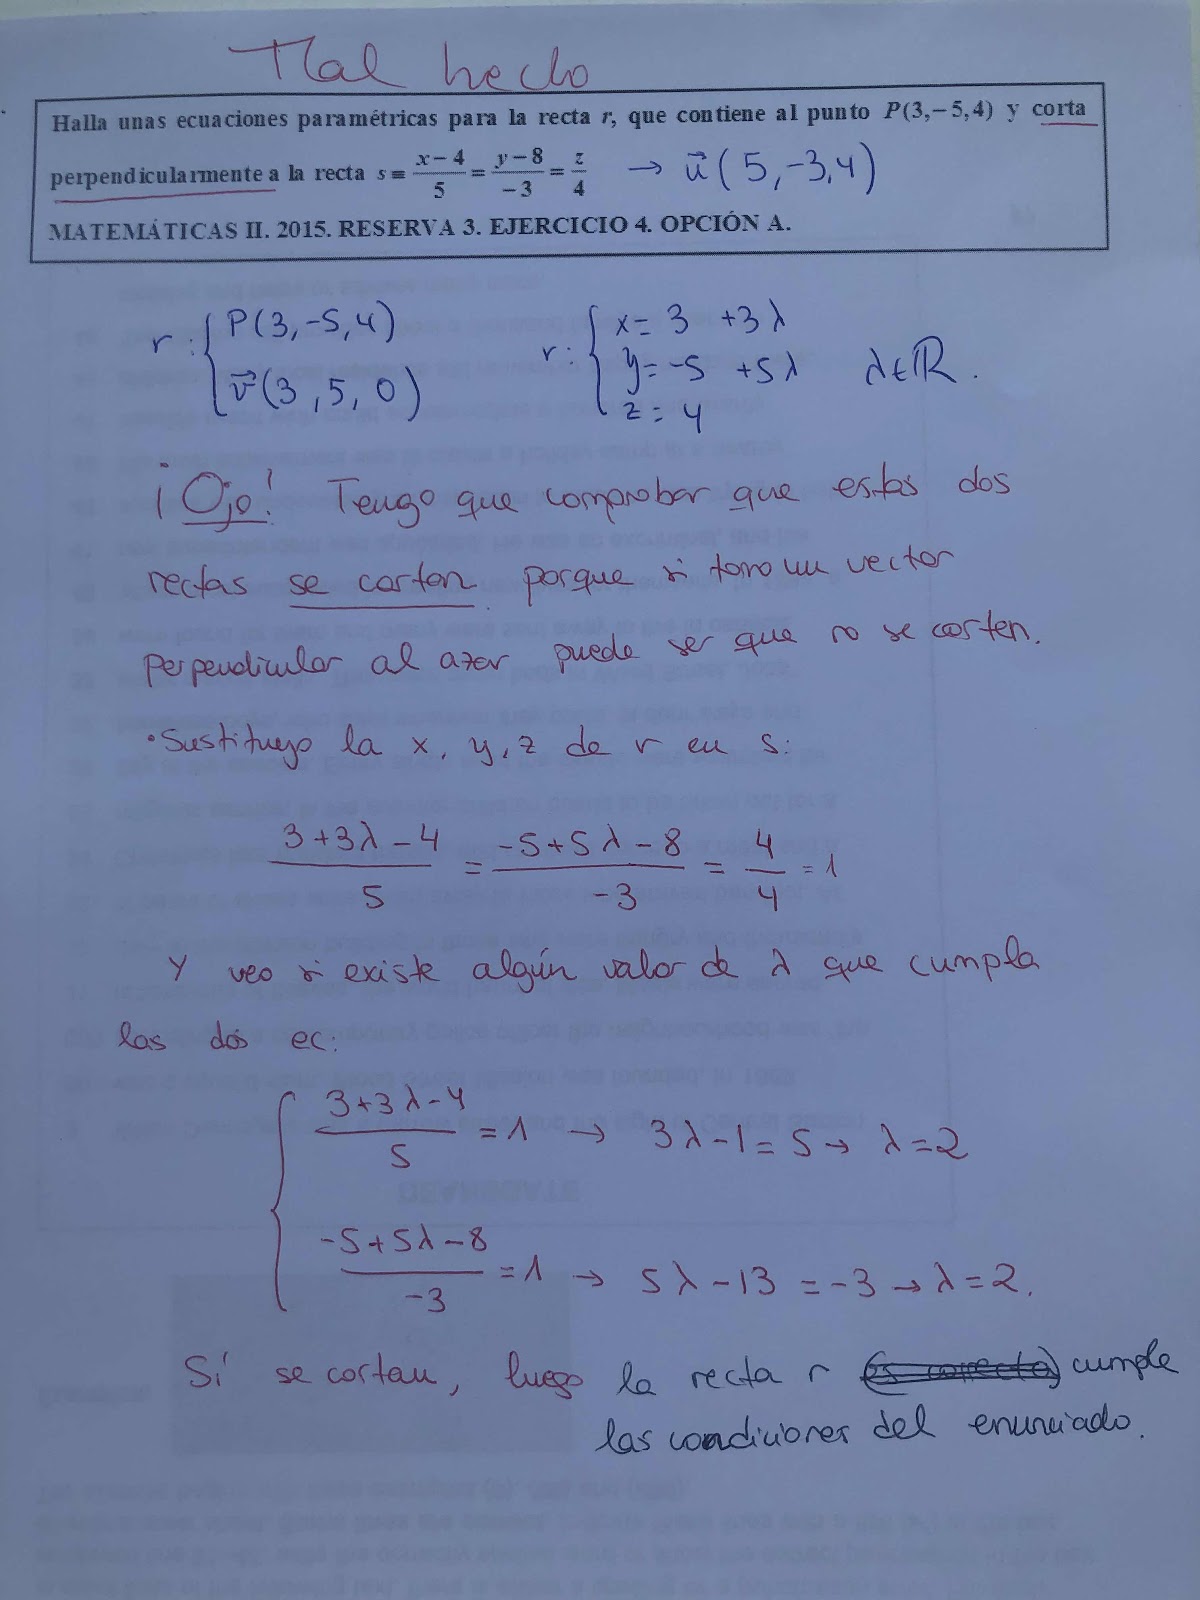 Mal hecho
Halla unas ecuaciones paramétricas para la recta r, que contiene al punto P(3,−5,4) y corta
perpendicularmente a la recta s ≡ (x−4)/5 = (y−8)/−3 = z/4 → u⃗(5,-3,4)
MATEMÁTICAS II. 2015. RESERVA 3. EJERCICIO 4. OPCIÓN A.
r: { P(3,-5,4)
v⃗(3,5,0)
r: { x = 3 + 3λ
y = -5 + 5λ λ∈ℝ.
z = 4
¡Ojo! Tengo que comprobar que estas dos
rectas se cortan porque si tomo un vector
perpendicular al azar puede ser que no se corten.
• Sustituyo la x, y, z de r en s:
(3+3λ-4)/5 = (-5+5λ-8)/-3 = 4/4 = 1
Y veo si existe algún valor de λ que cumpla
las dos ec:
{ (3+3λ-4)/5 = 1 → 3λ-1 = 5 → λ=2
(-5+5λ-8)/-3 = 1 → 5λ-13 = -3 → λ=2.
Sí se cortan, luego la recta r cumple
las condiciones del enunciado.